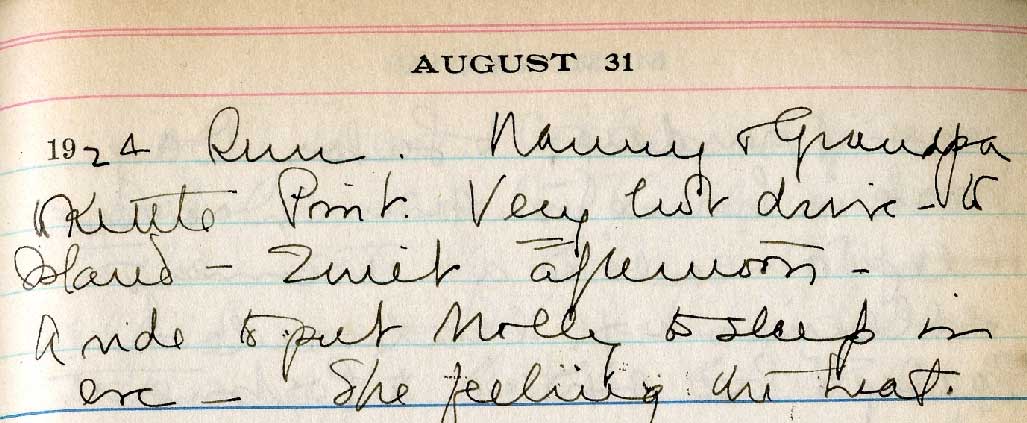 AUGUST 31
1924 Sun. Nanny & Grandpa
to Kettle Point. Very hot drive - to
Island - Quiet afternoon -
A ride to put Molly to sleep in
eve - She feeling the heat.